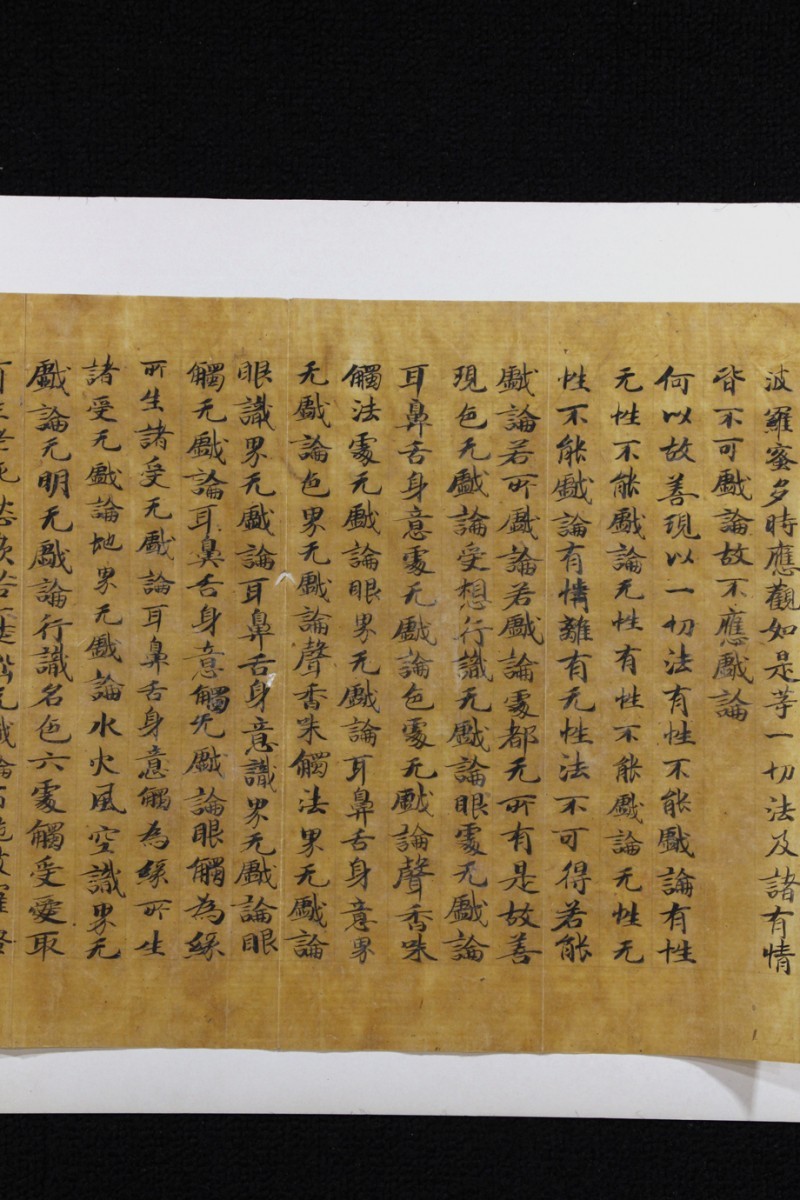 波羅蜜多時應觀如是等一切法及諸有情
皆不可戲論故不應戲論
何以故善現以一切法有性不能戲論有性
无性不能戲論无性有性不能戲論无性无
性不能戲論有情離有无性法不可得若能
戲論若所戲論若戲論處都无所有是故善
現色无戲論受想行識无戲論眼處无戲論
耳鼻舌身意處无戲論色處无戲論聲香味
觸法處无戲論眼界无戲論耳鼻舌身意界
无戲論色界无戲論聲香味觸法界无戲論
眼識界无戲論耳鼻舌身意識界无戲論眼
觸无戲論耳鼻舌身意觸无戲論眼觸為緣
所生諸受无戲論耳鼻舌身意觸為緣所生
諸受无戲論地界无戲論水火風空識界无
戲論无明无戲論行識名色六處觸受愛取